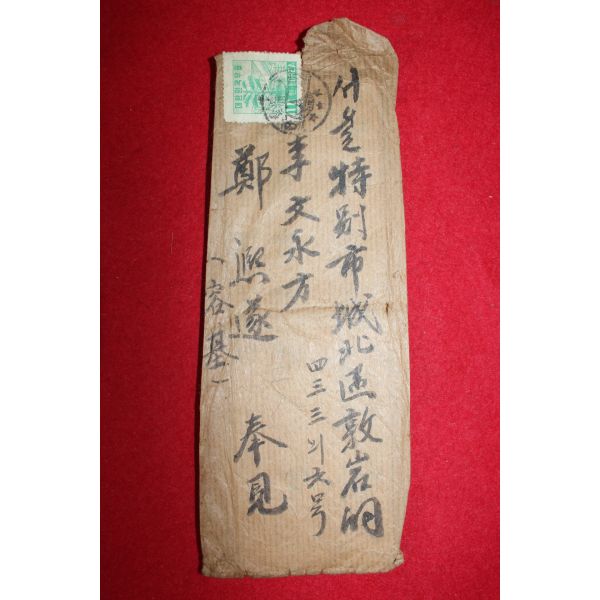 서울特別市城北區敦岩洞
四三三의六号
李文永方
鄭 熙遂 奉見
(容基)